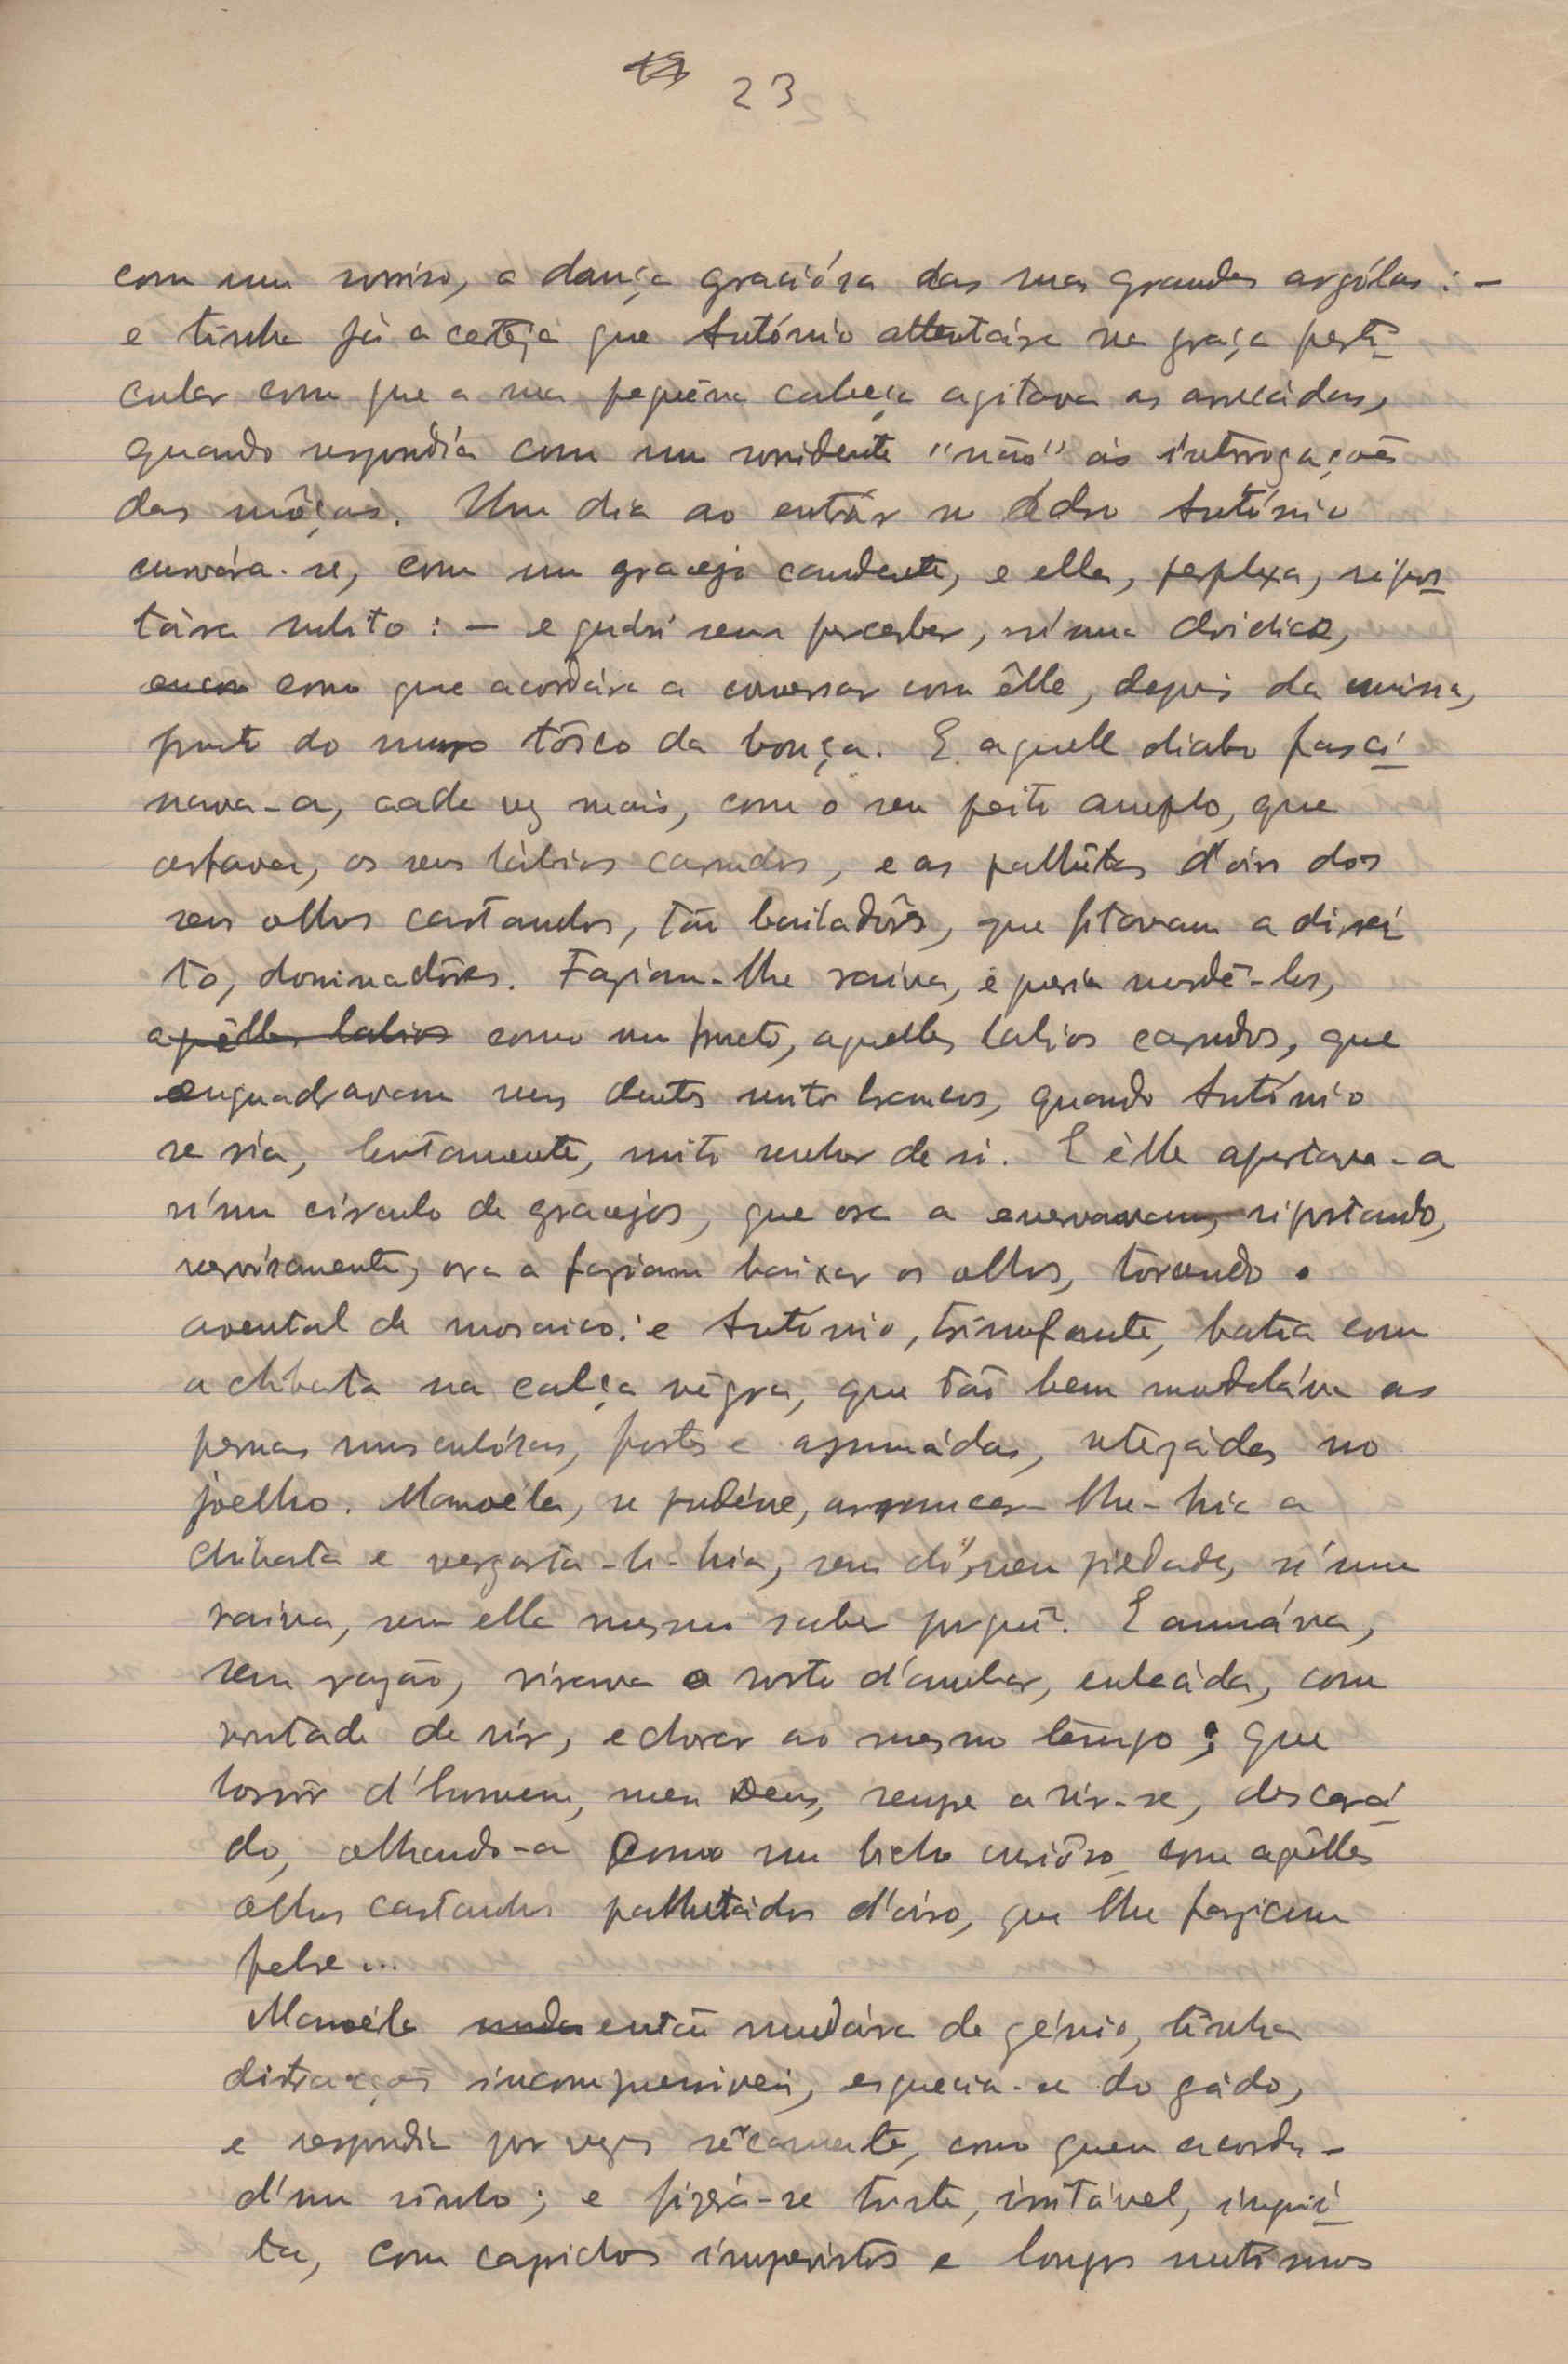 23
com um sorriso, a dança graciósa das suas grandes argólas: –
e tinha já a certeza que António attentára na graça parti-
cular com que a sua pequêna cabeça agitava as arrecádas,
quando respondia com um sorridente "não" ás interrogações
das môças. Um dia ao entrár no ádro António
curvára-se, com um gracejo candente, e ella, perplexa, ripos-
tára subito: – e quási sem perceber, n'uma doidice,
como que acordára a conversar com êlle, depois da missa,
junto do muro tôsco da bouça. E aquelle diabo fasci-
nava-a, cada vez mais, com o seu peito amplo, que
arfava, os seus lábios carnudos, e as palhêtas d'oiro dos
seus olhos castanhos, tão bailadôres, que fitavam a direi-
to, dominadôres. Faziam-lhe raiva, e queria mordê-los,
como um fructo, aquelles labios carnudos, que
enquadravam uns dentes muito brancos, quando António
se ria, lentamente, muito senhor de si. E êlle apertava-a
n'um círculo de gracejos, que ora a enervavam, ripostando,
nervosamente, ora a faziam baixar os olhos, torcendo o
avental de mosaico: e António, triunfante, batia com
a chibata na calça nêgra, que tão bem modeláva as
pernas musculósas, fortes e aprumádas, retezádas no
joelho. Manoéla, se pudésse, arrancar-lhe-hia a
chibata e vergasta-lo-hia, sem dó, nem piedade, n'uma
raiva, sem ella mesmo saber porquê. E amuáva,
sem razão, virava o rosto d'ambar, enleáda, com
vontade de rir, e chorar ao mesmo têmpo; que
torrôr d'homem, meu Deus, sempre a rir-se, descará-
do, olhando-a como um bicho curiôso, com aquêlles
olhos castanhos palhetádos d'oiro, que lhe faziam
febre...
Manoéla então mudára de génio, tinha
distracções incomprensiveis, esquecia-se do gádo,
e respondia por vezes sêcamente, como quem acorda
d'um sônho; e fizerá-se triste, irritável, inquié-
ta, com caprichos imprevistos e longos mutismos